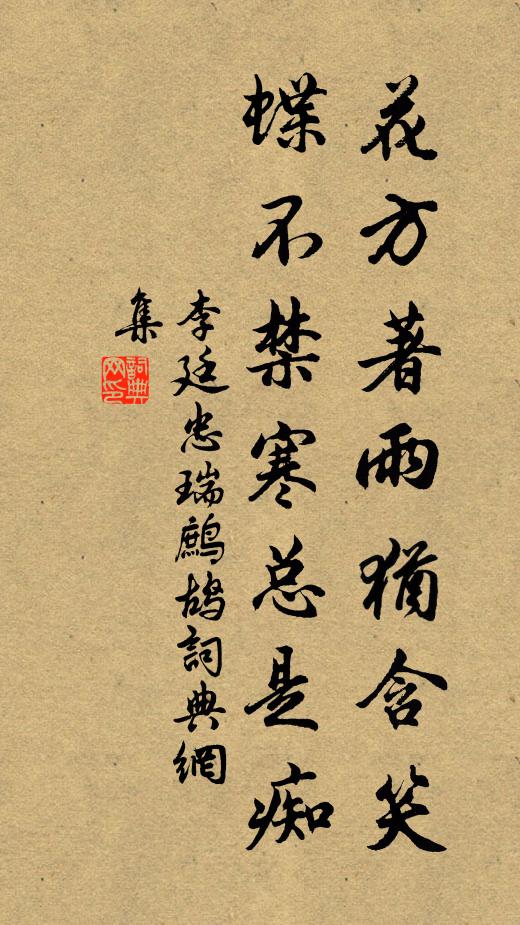 花方著雨猶含笑
蝶不禁寒总是痴
李廷忠瑞鷓鴣詞典網
集
詞典网印